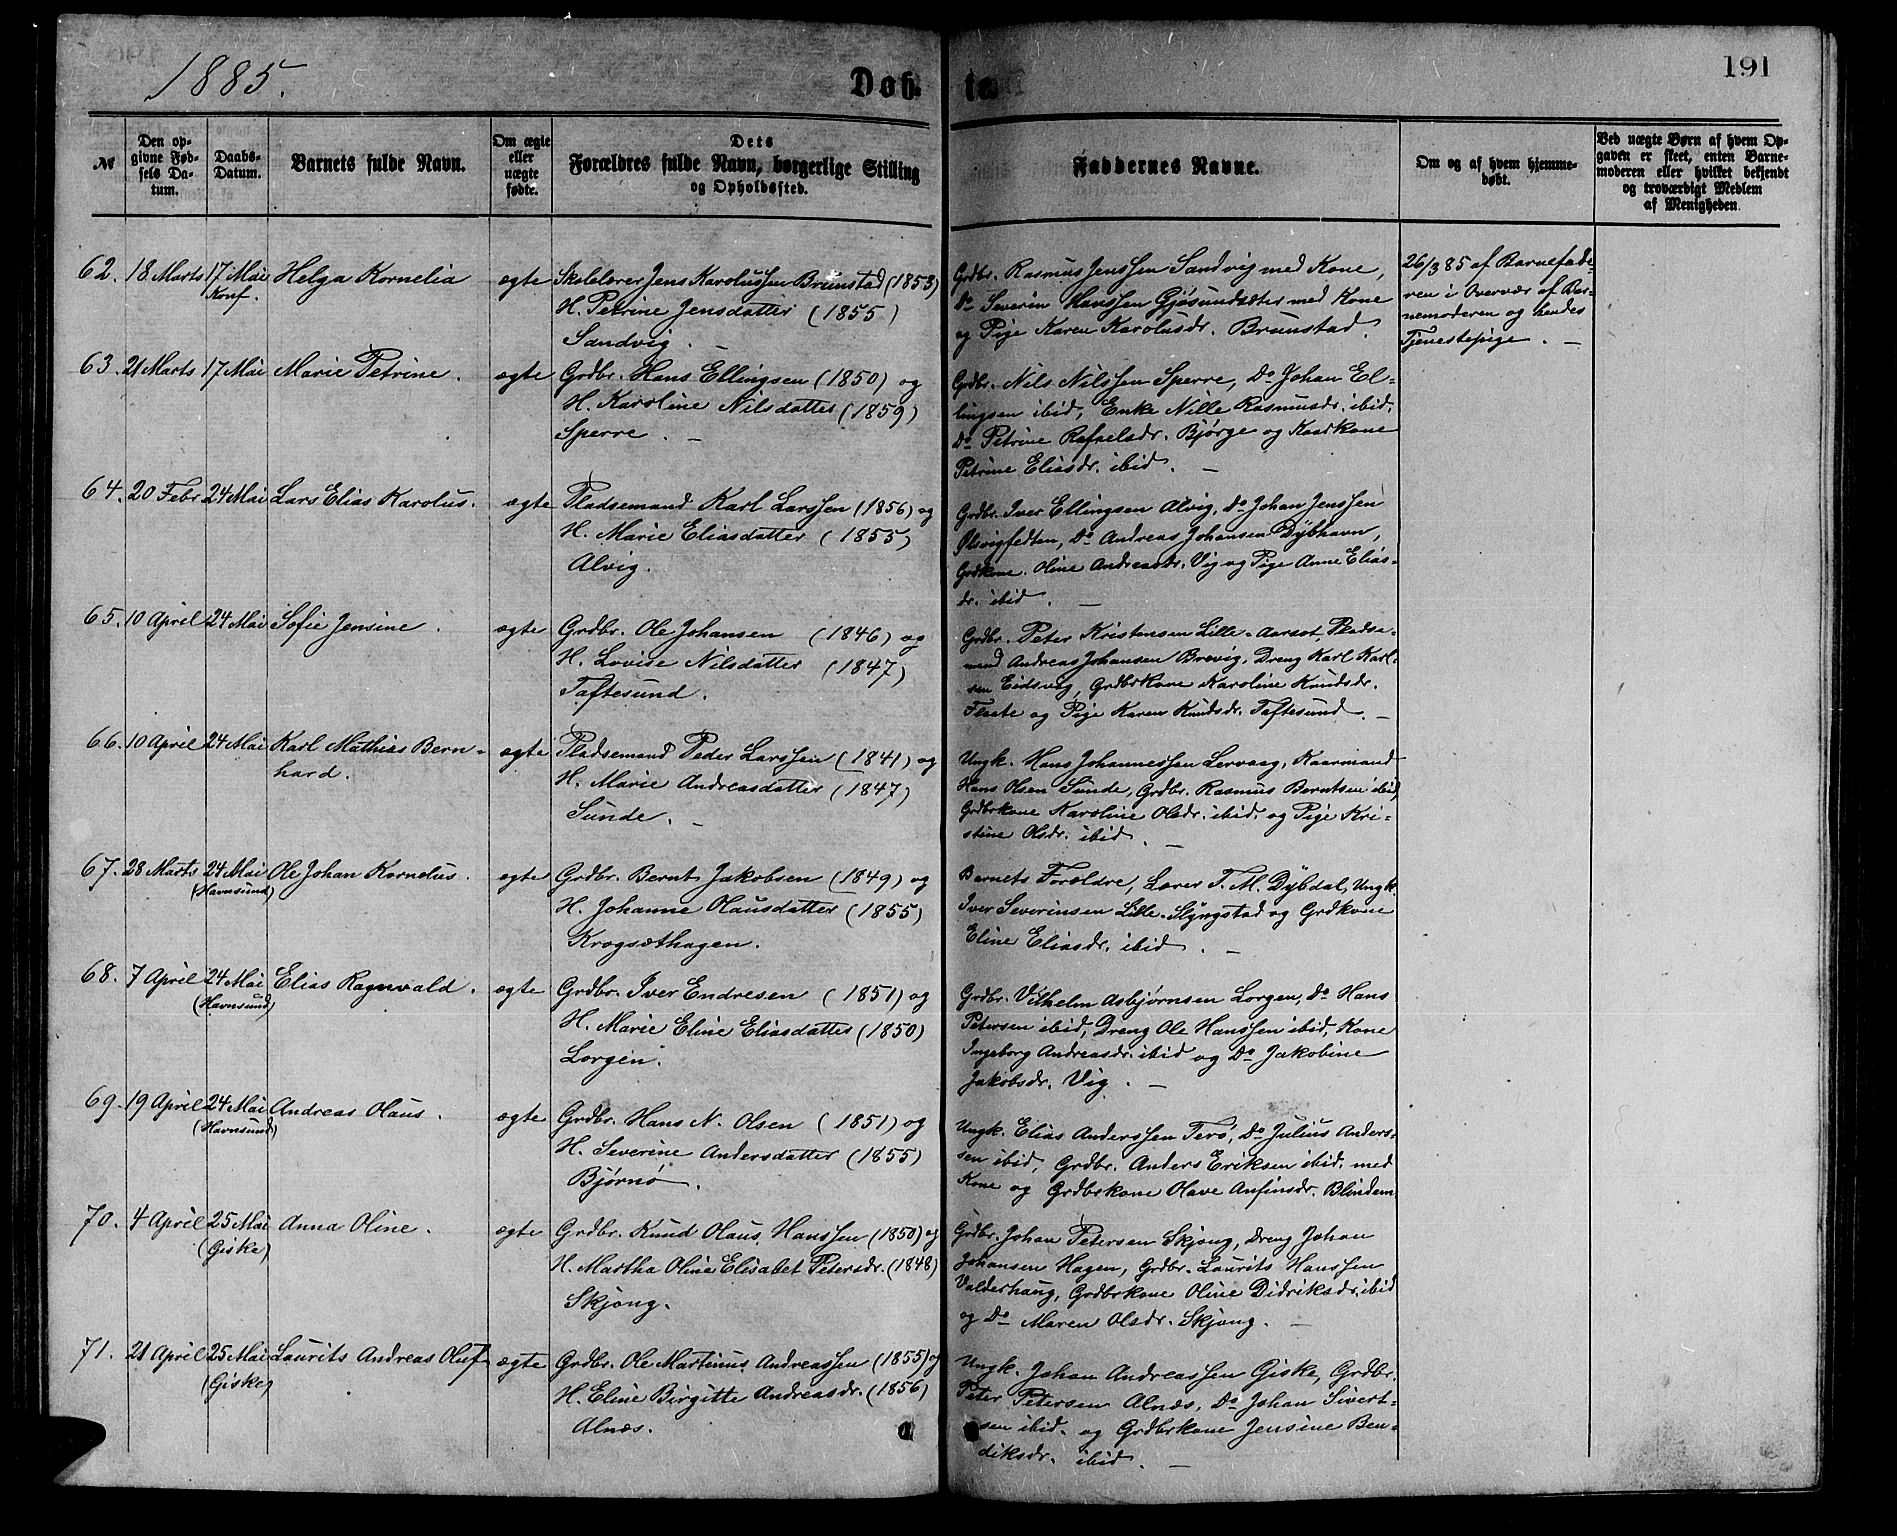 1885.
Døb-
te.
191
№
Den op-
givne Fød-
sels Da-
tum.
Daabs-
Datum.
Barnets fulde Navn.
Om ægte
eller
uægte
fødte.
Dets
Forældres fulde Navn, borgerlige Stilling
og Opholdssted.
Faddernes Navne.
Om og af hvem hjemme-
døbt.
Ved uægte Børn af hvem Op-
gaven er skeet, enten Barne-
moderen eller hvilket bekjendt
og troværdigt Medlem
af Menigheden.
62. 18 Marts 17 Mai Helga Kornelia ægte Skolelærer Jens Karolussen Brunstad (1853)
Konf.
H. Petrine Jensdatter (1855)
Sandvig. –
Grdbr. Rasmus Jenssen Sandvig med Kone,
Do Severin Hanssen Gjøsundsæter med Kone
og Pige Karen Karolusdr. Brunstad.
26/3 85 af Barnefade-
ren i Overvær af Bar-
nemoderen og hendes
Tjenestepige. –
63. 21 Marts 17 Mai Marie Petrine. ægte Grdbr. Hans Ellingsen (1850) og
H. Karoline Nilsdatter (1859)
Sperre. –
Grdbr. Nils Nilssen Sperre, Do Johan El-
lingsen ibid, Enke Nille Rasmusdr. ibid,
Do Petrine Rafaelsdr. Bjørge og Kaarkone
Petrine Eliasdr. ibid. –
64. 20 Febr 24 Mai Lars Elias Karolus. ægte Pladsemand Karl Larssen (1856) og
H. Marie Eliasdatter (1855)
Alvig.
Grdbr. Iver Ellingsen Alvig, Do Johan Jenssen
Ulsvigfedten, Do Andreas Johansen Dybhavn,
Grdkone. Oline Andreasdr. Vig og Pige Anne Elias-
dr. ibid. –
65. 10 April 24 Mai Sofie Jensine. ægte Grdbr. Ole Johansen (1846) og
H. Lovise Nilsdatter (1847)
Taftesund.
Grdbr. Peter Kristensen Lille-Aarsæt, Pladse-
mand Andreas Johansen Brevig, Dreng Karl Karl-
sen Eidsvig, Grdbrkone Karoline Knudsdr.
Flaate og Pige Karen Knudsdr. Taftesund. –
66. 10 April 24 Mai Karl Mathias Bern- ægte Pladsemand Peder Larssen (1841) og
hard.
H. Marie Andreasdatter (1847)
Sunde. –
Ungk. Hans Johannessen Lervaag, Kaarmand
Hans Olsen Sunde, Grdbr. Rasmus Berntsen ibid,
Grdbrkone Karoline Olsdr. ibid. og Pige Kri-
stine Olsdr. ibid. –
67. 28 Marts 24 Mai Ole Johan Kornelus. ægte Grdbr. Bernt Jakobsen (1849) og
(Havnsund)
H. Johanne Olausdatter (1855)
Krogsæthagen.
Barnets Forældre, Lærer T. M. Dybdal, Ungk.
Iver Severinsen Lille-Slyngstad og Grdkone
Eline Eliasdr. ibid. –
68. 7 April 24 Mai Elias Ragnvald. ægte Grdbr. Iver Endresen (1851) og
(Havnsund)
H. Marie Eline Eliasdatter (1850)
Lorgen.
Grdbr. Vilhelm Asbjørnsen Lorgen, Do Hans
Petersen ibid, Dreng Ole Hanssen ibid, Kone
Ingeborg Andreasdr. ibid og Do Jakobine
Jakobsdr. Vig. –
69. 19 April 24 Mai Andreas Olaus. ægte Grdbr. Hans N. Olsen (1851) og
(Havnsund)
H. Severine Andersdatter (1855)
Bjørnø.
Ungk. Elias Anderssen Terø, Do Julius Anders-
sen ibid, Grdbr. Anders Eriksen ibid. med
Kone og Grdbrkone Olave Anfinsdr. Blindem
70. 4 April 25 Mai Anna Oline. ægte Grdbr. Knud Olaus Hanssen (1850) og
(Giske)
H. Martha Oline Elisabet Petersdr. (1848)
Skjong.
Grdbr. Johan Petersen Skjong, Dreng Johan
Johansen Hagen, Grdbr. Laurits Hanssen
Valderhaug, Grdbrkone Oline Didriksdr. ibid
og Do Maren Olsdr. Skjong. –
71. 21 April 25 Mai Laurits Andreas Oluf ægte Grdbr. Ole Martinus Andreassen (1855) og
(Giske)
H. Eline Birgitte Andreasdr. (1856)
Alnæs.
Ungk. Johan Andreassen Giske, Grdbr.
Peter Petersen Alnæs, Do Johan Sivert-
sen ibid. og Grdbrkone Jensine Ben-
diksdr. ibid. –